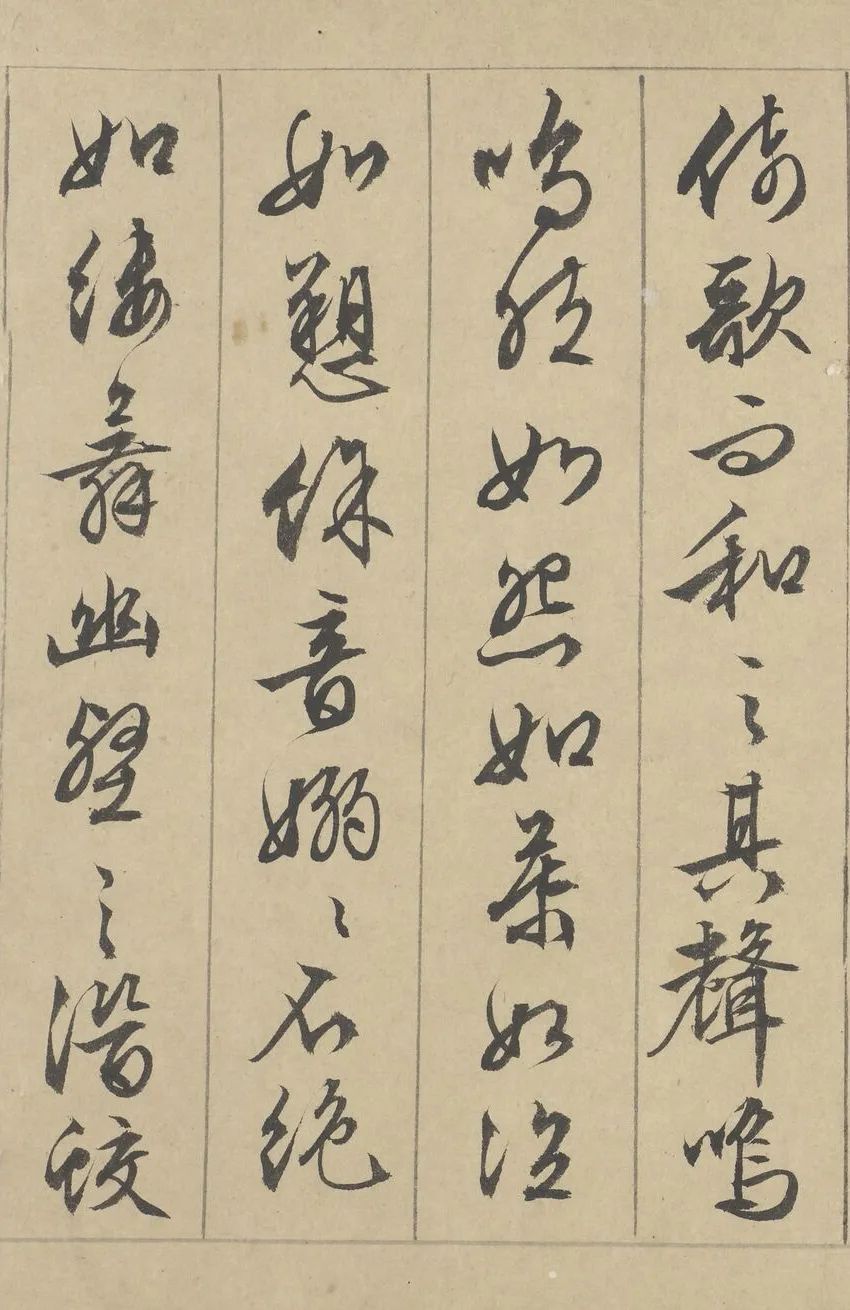 倚歌而和之其聲嗚
嗚然如怨如慕如泣
如愬餘音嫋〻不絕
如縷舞幽壑之潛蛟